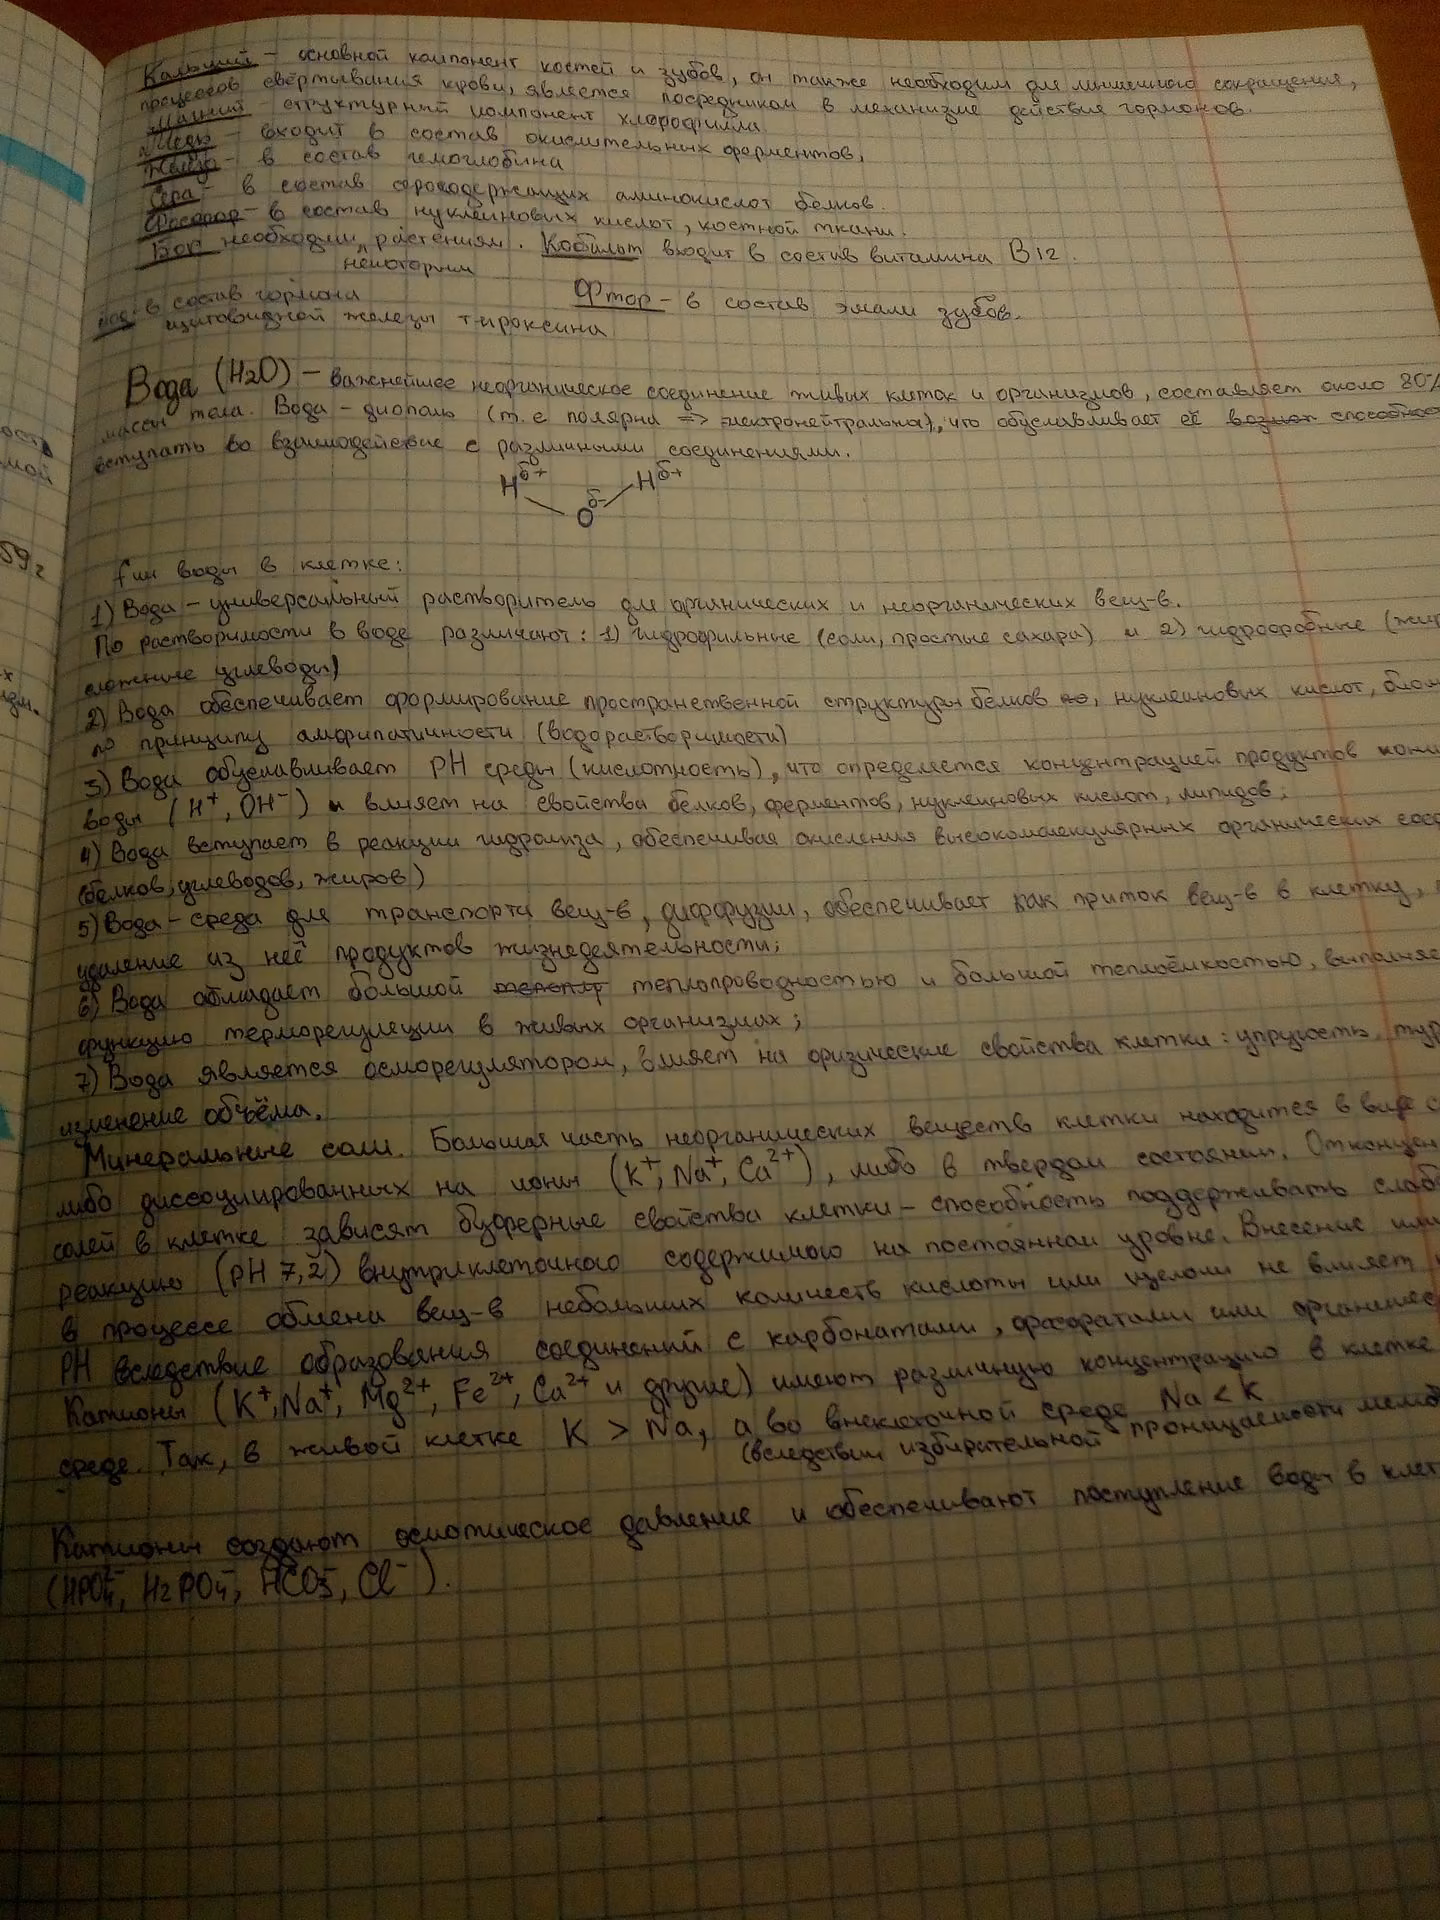 Кальций – основной компонент костей и зубов, он также необходим для мышечного сокращения,
процессов свёртывания крови, является посредником в механизме действия гормонов.
Магний – структурный компонент хлорофилла
Медь – входит в состав окислительных ферментов,
Железо – в состав гемоглобина
Сера – в состав серосодержащих аминокислот белков.
Фосфор – в состав нуклеиновых кислот, костной ткани.
Бор необходим растениям. Кобальт входит в состав витамина B12.
некоторым
Йод: в состав гормона
Фтор – в состав эмали зубов.
щитовидной железы тироксина
Вода (H2O) – важнейшее неорганическое соединение живых клеток и организмов, составляет около 80%
массы тела. Вода – диополь (т.е полярна => электронейтральна), что обуславливает её способнос
вступать во взаимодействие с различными соединениями.
Hδ+ Hδ+
Oδ-
fии воды в клетке:
1) Вода – универсальный растворитель для органических и неорганических вещ-в.
По растворимости в воде различают: 1) гидрофильные (соли, простые сахара) и 2) гидрофобные (жир
сложные углеводы)
2) Вода обеспечивает формирование пространственной структуры белков, нуклеиновых кислот,
по принципу амфипатичности (водорастворимости)
3) Вода обуславливает PH среды (кислотность), что определяется концентрацией продуктов
воды (H+, OH-) и влияет на свойства белков, ферментов, нуклеиновых кислот, липидов;
4) Вода вступает в реакции гидролиза, обеспечивая окисления высокомолекулярных органических соед
(белков, углеводов, жиров)
5) Вода – среда для транспорта вещ-в, диффузии, обеспечивает как приток вещ-в в клетку,
удаление из неё продуктов жизнедеятельности;
6) Вода обладает большой теплопроводностью и большой теплоёмкостью, выполняе
функцию терморегуляции в живых организмах;
7) Вода является осморегулятором, влияет на физические свойства клетки: упругость, тур
изменение объёма.
Минеральные соли. Большая часть неорганических веществ клетки находится в виде с
либо диссоциированных на ионы (K+, Na+, Ca2+), либо в твердом состоянии. От концен
солей в клетке зависят буферные свойства клетки – способность поддерживать слаб
реакцию (pH 7,2) внутриклеточного содержимого на постоянном уровне. Внесение или
в процессе обмена вещ-в небольших количеств кислоты или щелочи не влияет
PH вследствие образования соединений с карбонатами, фосфатами или органичес
Катионы (K+, Na+, Mg2+, Fe2+, Ca2+ и другие) имеют различную концентрацию в клетке
среде. Так, в живой клетке K > Na, а во внеклеточной среде Na < K
(вследствии избирательной проницаемости мемб
Катионы создают осмотическое давление и обеспечивают поступление воды в клет
(HPO4-, H2PO4-, HCO3-, Cl-).